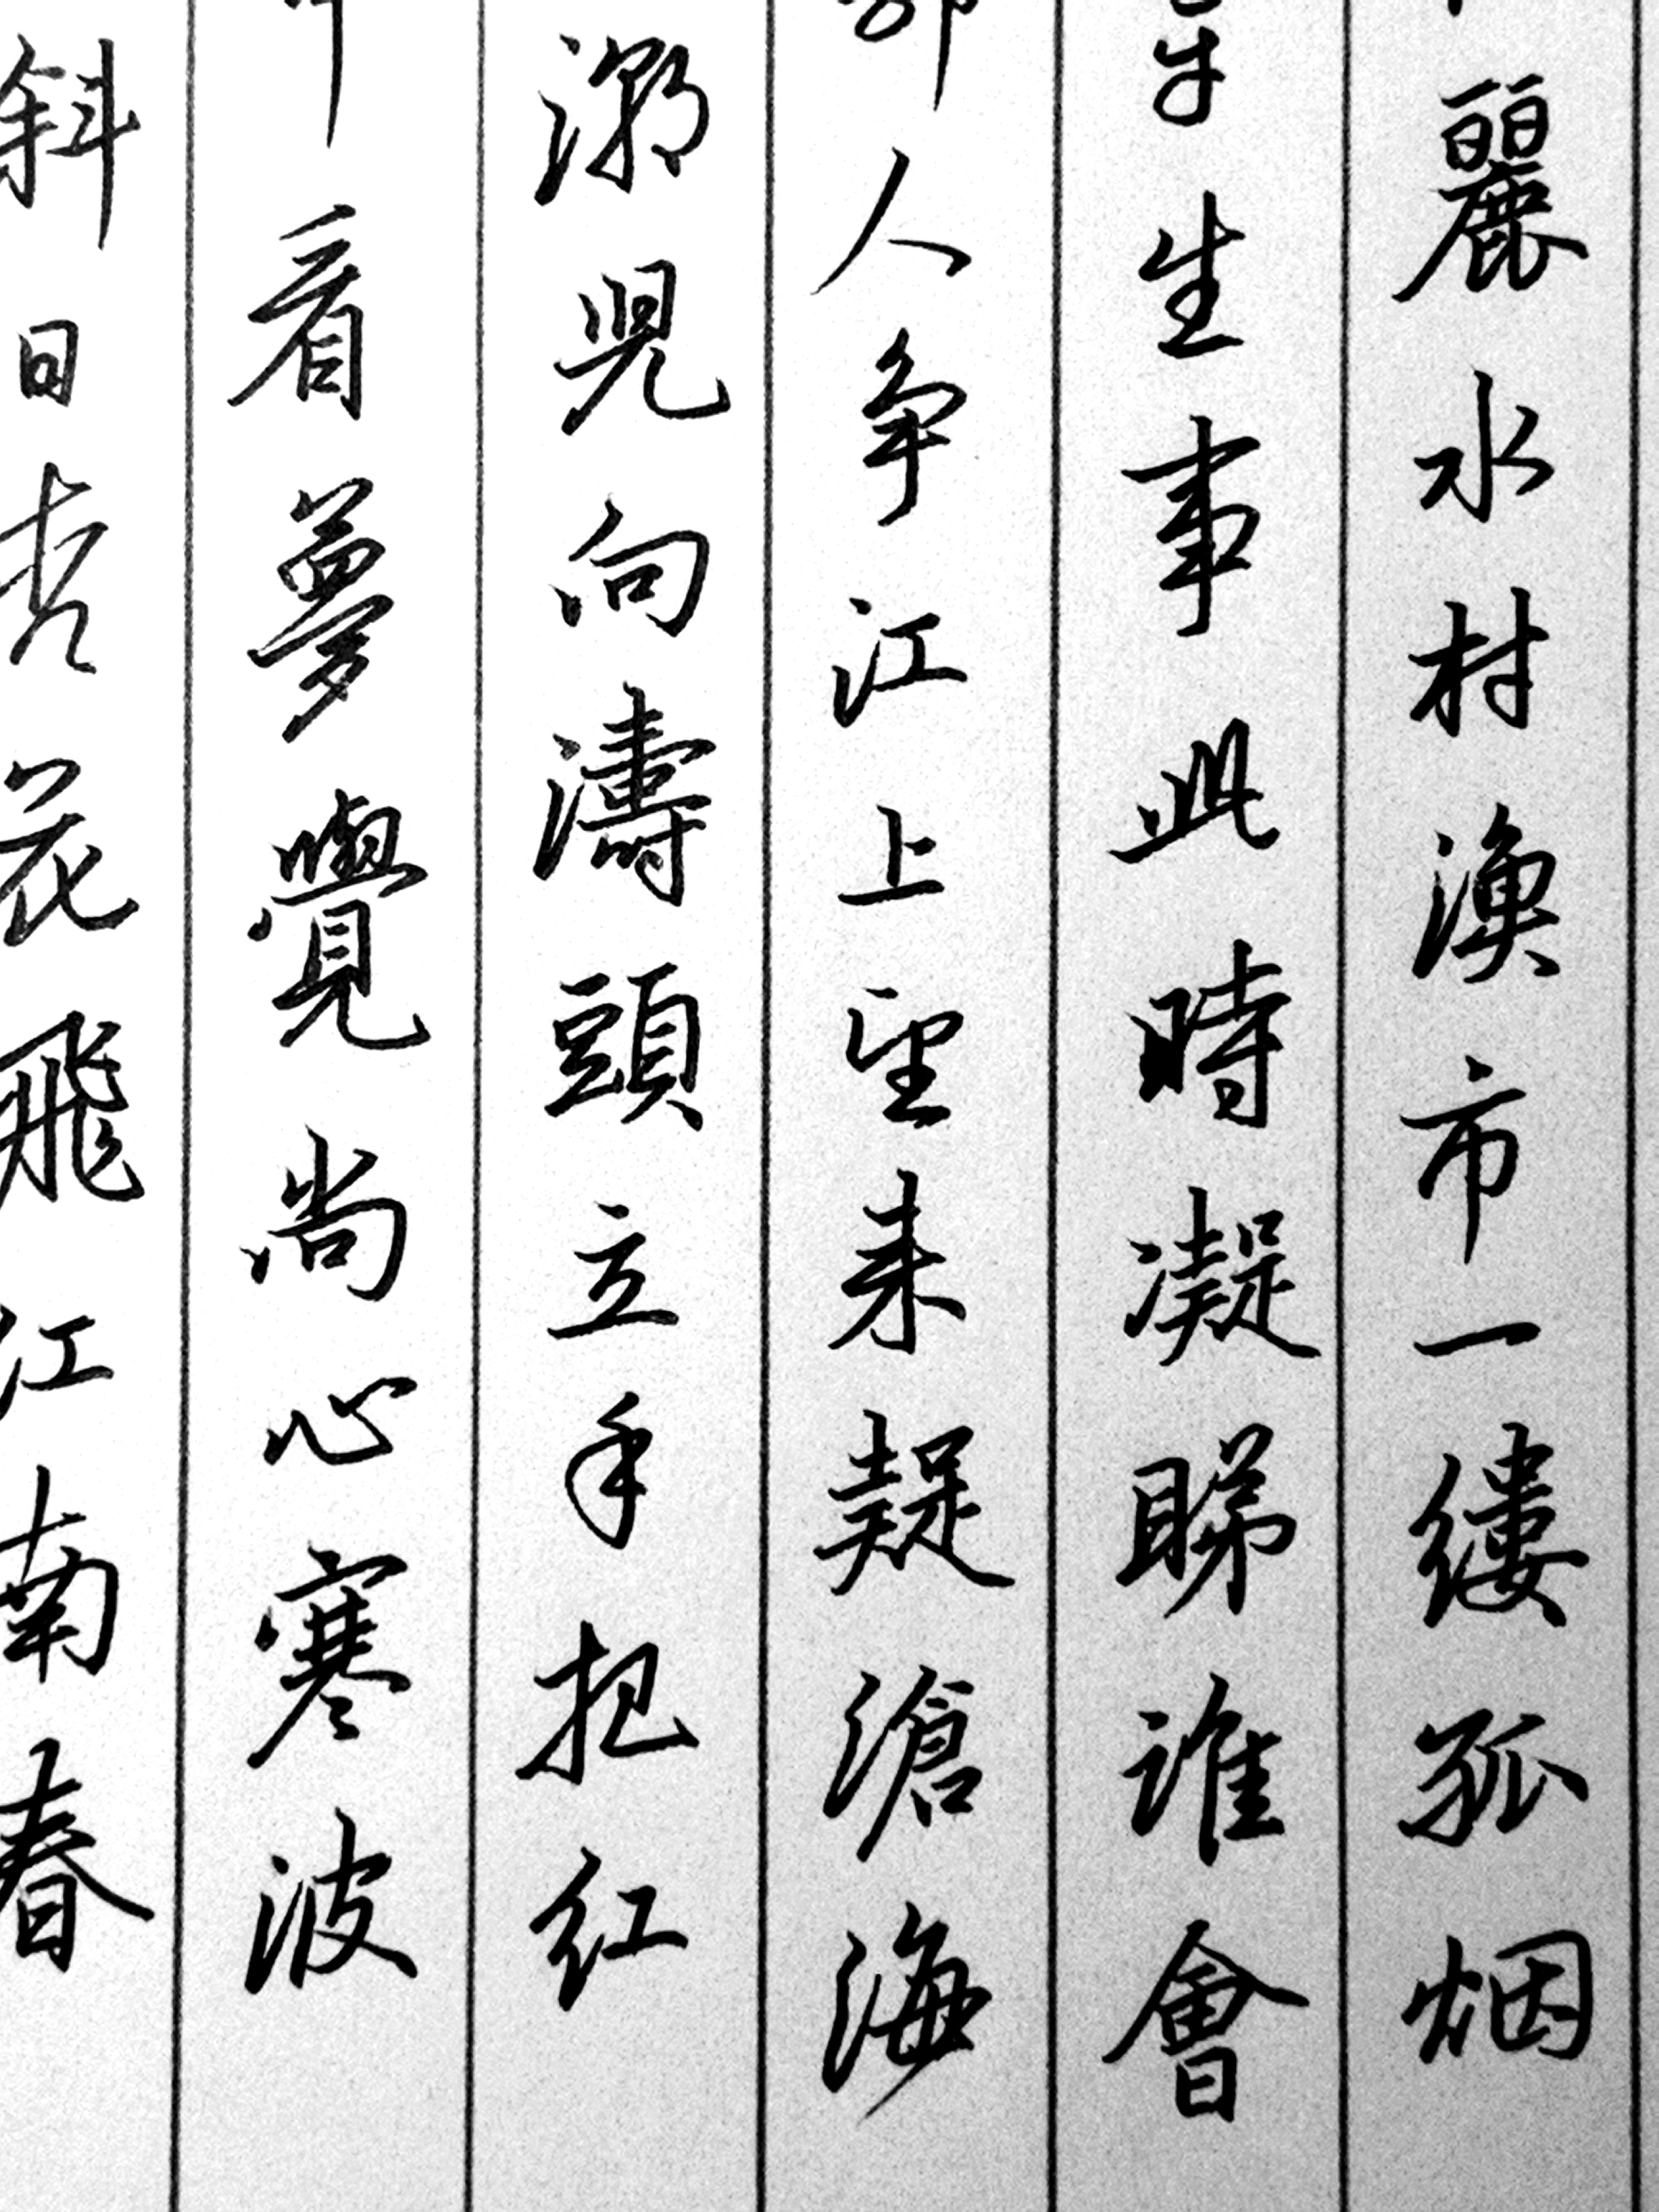 麗水村漁市一缕孤烟
生事此時凝睇誰會
人争江上望来疑滄海
兒向濤頭立手把红
看夢覺尚心寒波
斜日杏花飛江南春